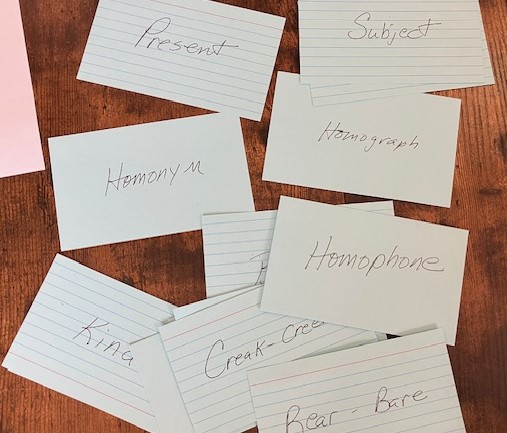 Present
Subject
Homograph
Homonym
Homophone
Creak-
Bear - Bare